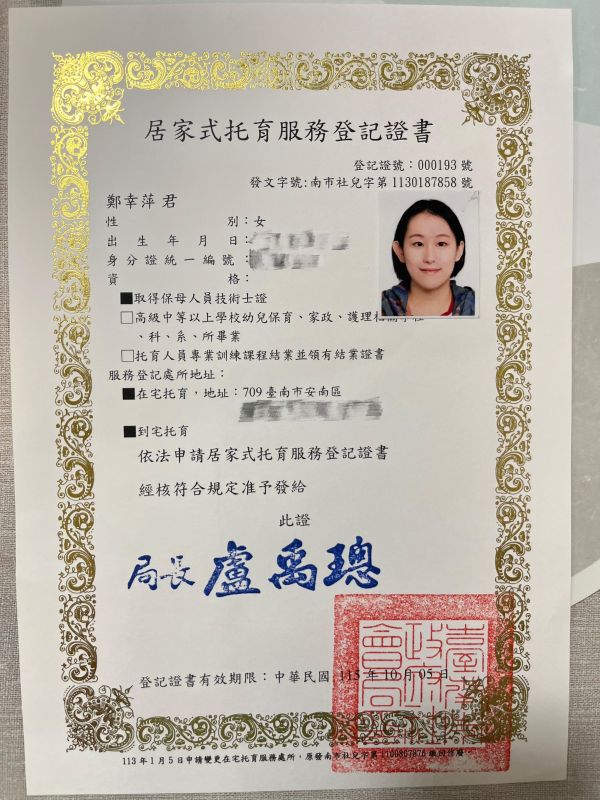 居家式托育服務登記證書
登記證號：000193 號
發文字號：南市社兒字第 1130187858 號
鄭幸萍 君
性別：女
出生年月日：
身分證統一編號：
資格：
■取得保母人員技術士證
□高級中等以上學校幼兒保育、家政、護理相關學程
、科、系、所畢業
□托育人員專業訓練課程結業並領有結業證書
服務登記處所地址：
■在宅托育，地址：709 臺南市安南區
■到宅托育
依法申請居家式托育服務登記證書
經核符合規定准予發給
此證
局長 盧禹璁
登記證書有效期限：中華民國 115 年 10 月 05 日
臺南市政府社會局
113 年 1 月 5 日申請變更在宅托育服務處所，原發南市社兒字第 1100867876 號